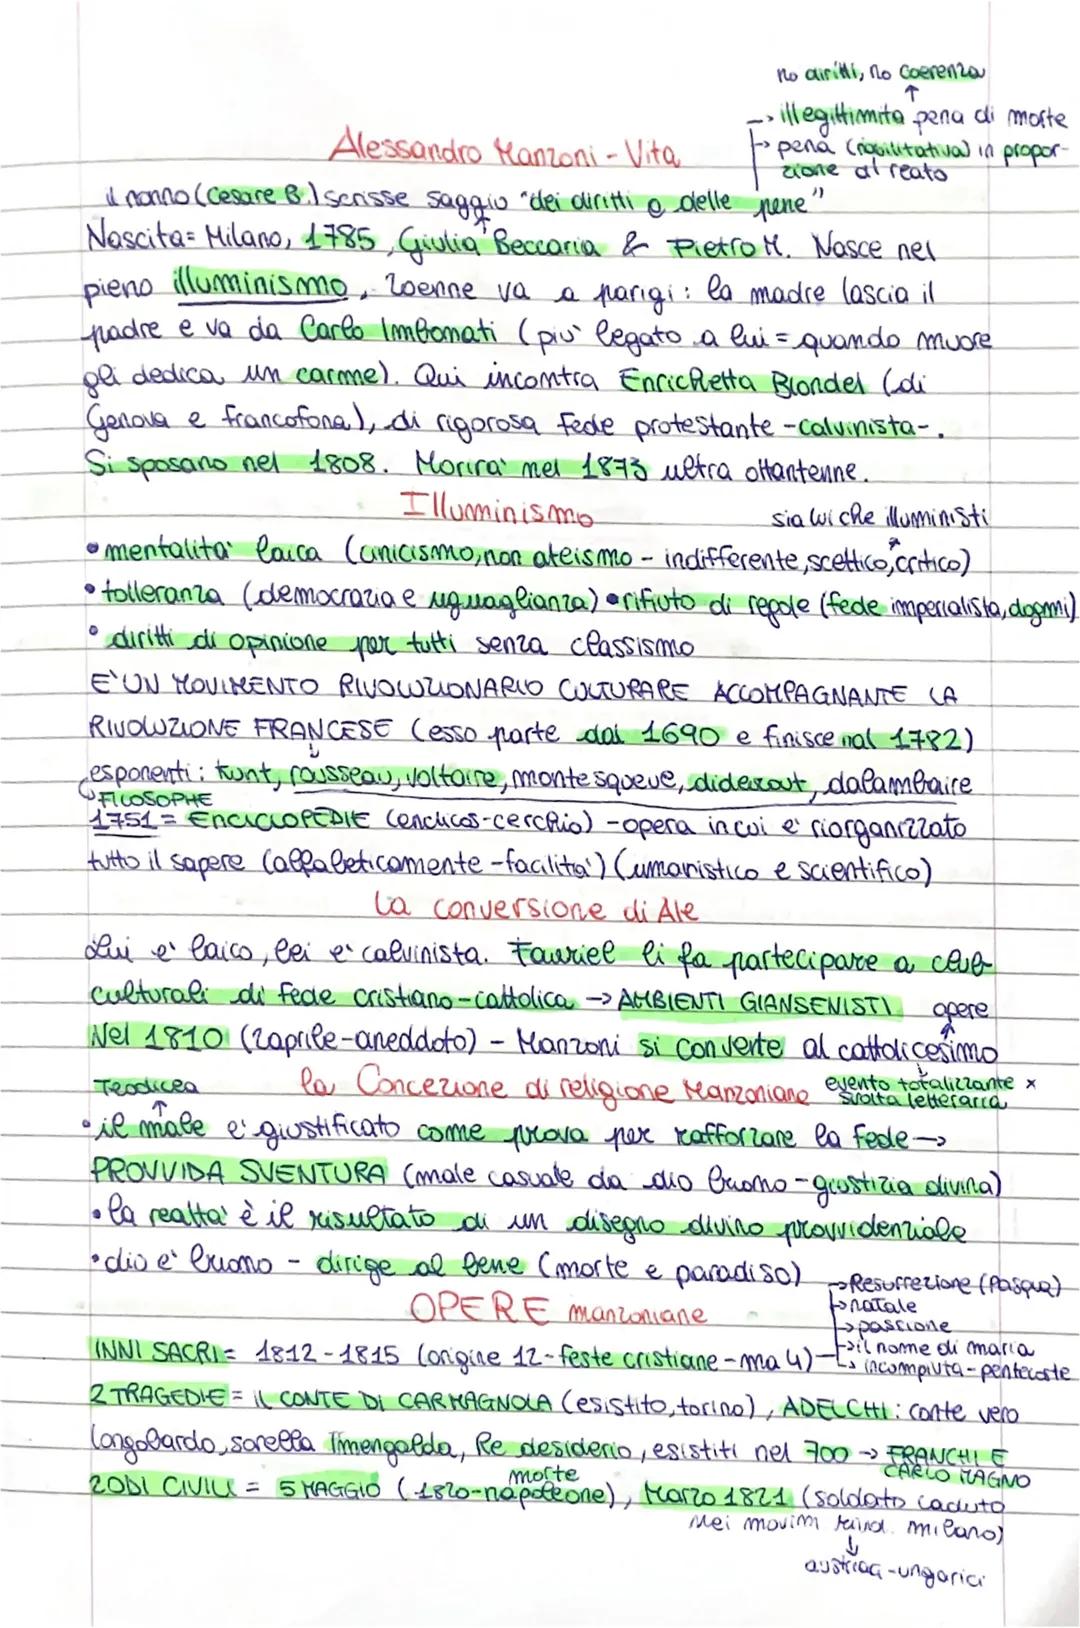 no diritti, no coerenza
↑
→ illegittimità pena di morte
Alessandro Manzoni - Vita
→ pena (riabilitativa) in propor-
zione al reato
il nonno (Cesare B.) scrisse saggio "dei diritti e delle pene"
Nascita= Milano, 1785, Giulia Beccaria & Pietro M. Nasce nel
pieno illuminismo, 20enne va a parigi: la madre lascia il
padre e va da Carlo Imbonati (più legato a lui = quando muore
gli dedica un carme). Qui incontra Enrichetta Blondel (di
Genova e francofona), di rigorosa fede protestante -calvinista-.
Si sposano nel 1808. Morirà nel 1873 ultra ottantenne.
Illuminismo
sia lui che illuministi
• mentalità laica (cinicismo, non ateismo - indifferente, scettico, critico)
• tolleranza (democrazia e uguaglianza) • rifiuto di regole (fede imperialista, dogmi)
• diritti di opinione per tutti senza classismo
E' UN MOVIMENTO RIVOLUZIONARIO CULTURARE ACCOMPAGNANTE LA
RIVOLUZIONE FRANCESE (esso parte dal 1690 e finisce nal 1782)
esponenti: kunt, rousseau, voltaire, montesqueve, diderout, dalambraire
↳ FILOSOPHE
1751 = ENCICLOPEDIE (enclicos-cerchio) - opera in cui e' riorganizzato
tutto il sapere (alfabeticamente - facilità) (umanistico e scientifico)
la conversione di Ale
Lui e' laico, lei e' calvinista. Fauriel li fa partecipare a club
culturali di fede cristiano-cattolica → AMBIENTI GIANSENISTI
opere
Nel 1810 (2 aprile-aneddoto) - Manzoni si converte al cattolicesimo
Teodicea
la Concezione di religione Manzoniana
evento totalizzante x
svolta letteraria
• il male e' giustificato come prova per rafforzare la fede →
PROVVIDA SVENTURA (male casuale da dio buono - giustizia divina)
• la realtà è il risultato di un disegno divino provvidenziale
• dio e' buono - dirige al bene (morte e paradiso)
OPERE manzoniane
→ Resurrezione (Pasqua)
→ natale
→ passione
→ il nome di maria
INNI SACRI = 1812-1815 (origine 12-feste cristiane-ma 4)
→ incompiuta - pentecoste
2 TRAGEDIE = IL CONTE DI CARMAGNOLA (esistito, torino), ADELCHI: conte vero
longobardo, sorella Timengalda, Re desiderio, esistiti nel 700 → FRANCHI E
CARLO MAGNO
morte
2 ODI CIVILI = 5 MAGGIO (1820-napoleone), Marzo 1821 (soldato caduto
nei movim milano)
↓
austriaci-ungarici